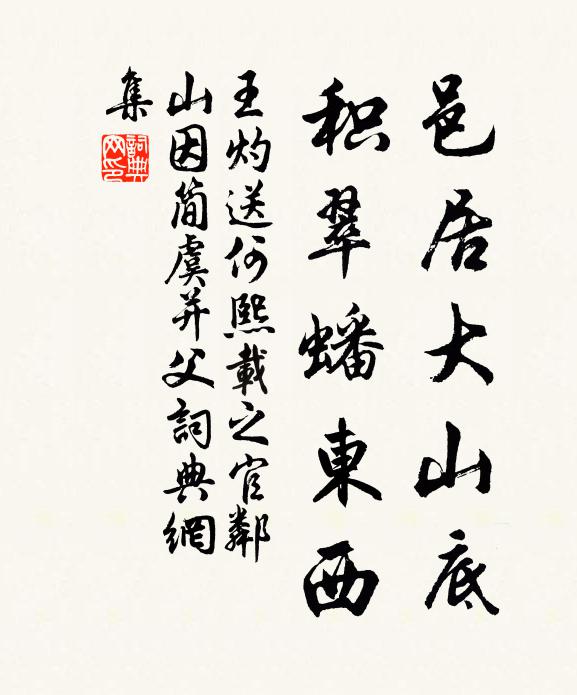 邑居大山底
积翠蟠東西
王灼送何熙載之官鄰
山因简虞并父詞典網
集
詞典網印